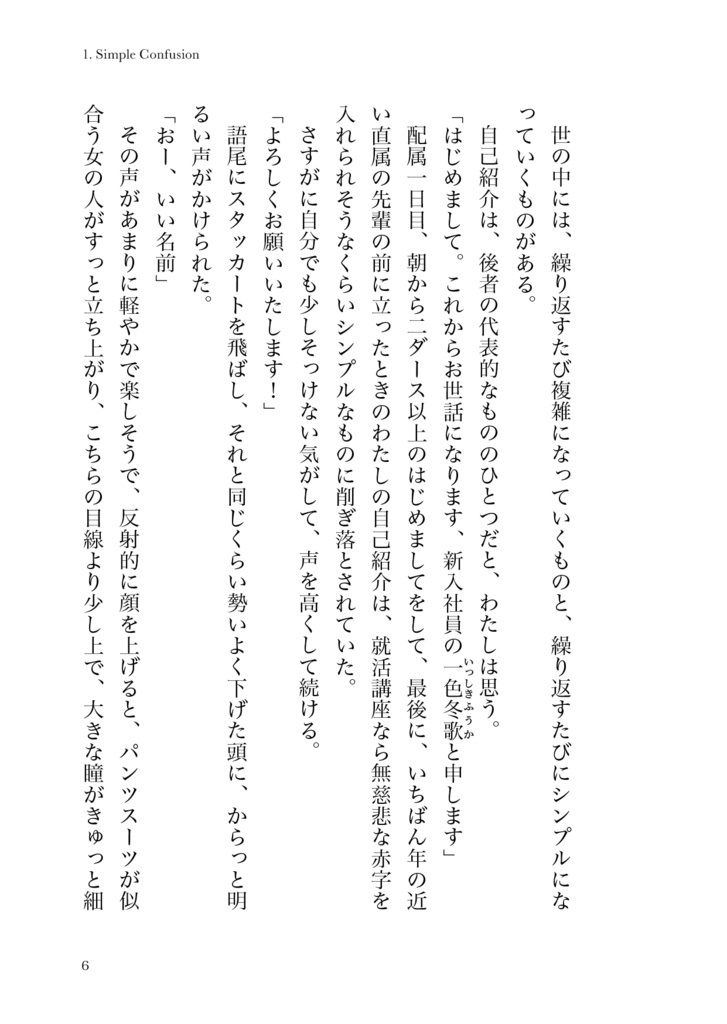 1. Simple Confusion
　世の中には、繰り返すたび複雑になっていくものと、繰り返すたびにシンプルにな
っていくものがある。
　自己紹介は、後者の代表的なもののひとつだと、わたしは思う。
「はじめまして。これからお世話になります、新入社員の一色冬歌と申します」
いっしきふうか
　配属一日目、朝から二ダース以上のはじめましてをして、最後に、いちばん年の近
い直属の先輩の前に立ったときのわたしの自己紹介は、就活講座なら無慈悲な赤字を
入れられそうなくらいシンプルなものに削ぎ落とされていた。
　さすがに自分でも少しそっけない気がして、声を高くして続ける。
「よろしくお願いいたします！」
　語尾にスタッカートを飛ばし、それと同じくらい勢いよく下げた頭に、からっと明
るい声がかけられた。
「おー、いい名前」
　その声があまりに軽やかで楽しそうで、反射的に顔を上げると、パンツスーツが似
合う女の人がすっと立ち上がり、こちらの目線より少し上で、大きな瞳がきゅっと細
6